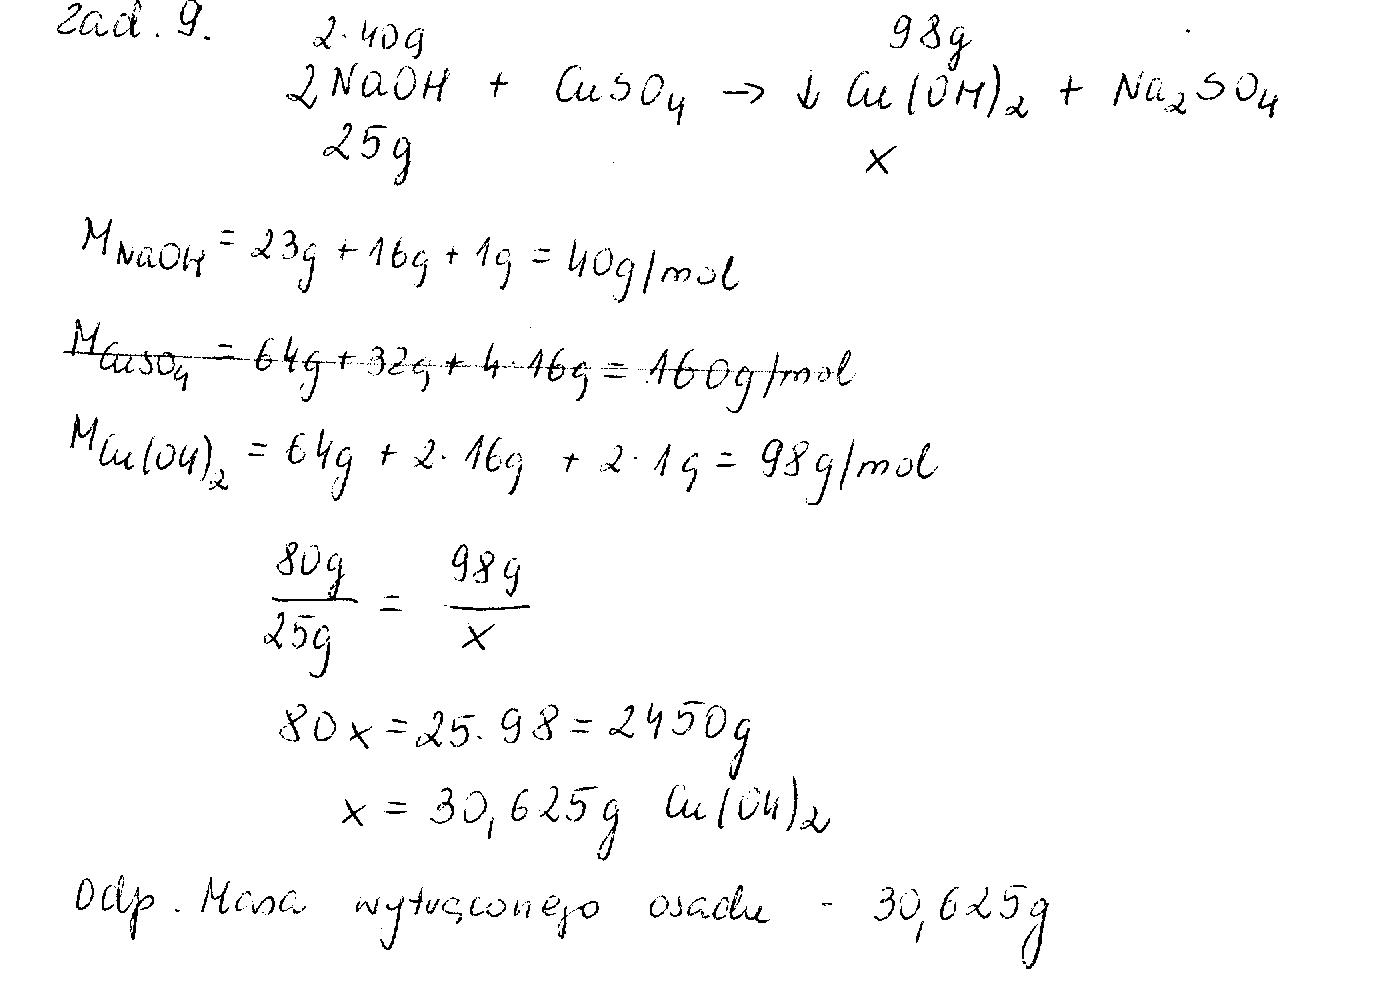 zad. 9.
2·40g 98g
2NaOH + CuSO4 → ↓ Cu(OH)2 + Na2SO4
25g x
MNaOH = 23g + 16g + 1g = 40g/mol
MCuSO4 = 64g + 32g + 4·16g = 160g/mol
MCu(OH)2 = 64g + 2·16g + 2·1g = 98g/mol
80g/25g = 98g/x
80x = 25·98 = 2450g
x = 30,625g Cu(OH)2
Odp. Masa wytrąconego osadu - 30,625g